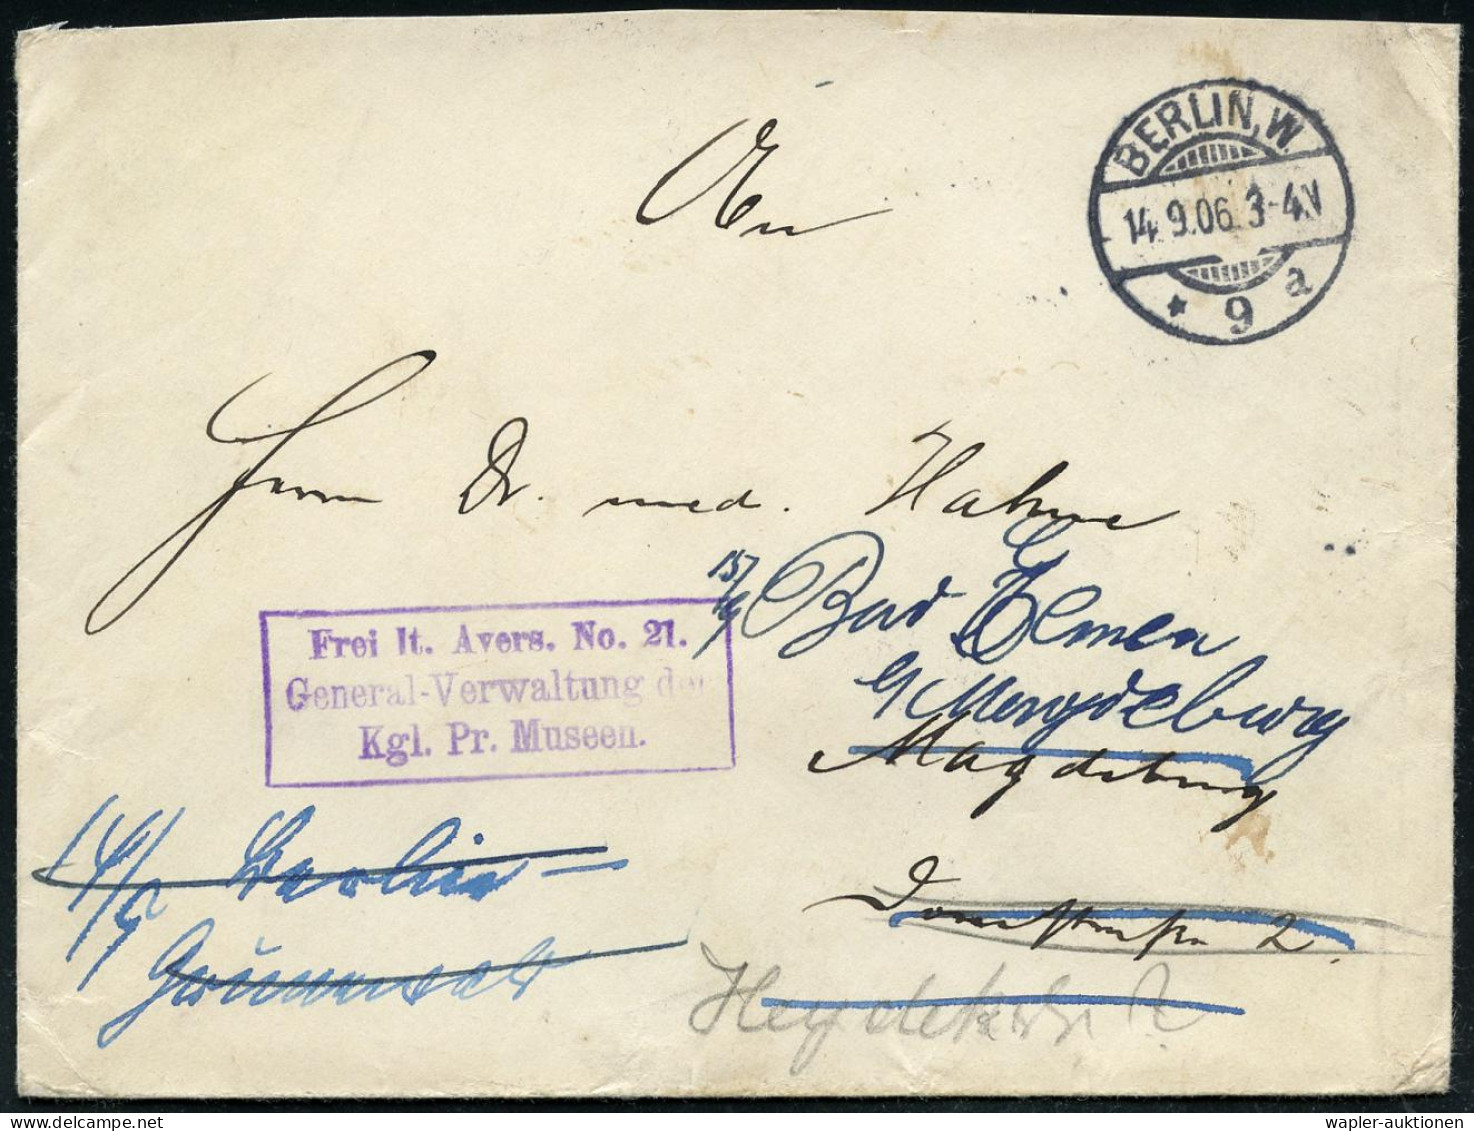 BERLIN, W.
14. 9.06. 3-4.V
* 9 a
An
Herrn Dr. med. Hahne
15/9 Bad Elmen
b/ Magdeburg
Magdeburg
Frei lt. Avers. No. 21.
General-Verwaltung der
Kgl. Pr. Museen.
14/9 Berlin-
Grunewald
Domstraße 2.
wapler-auktionen